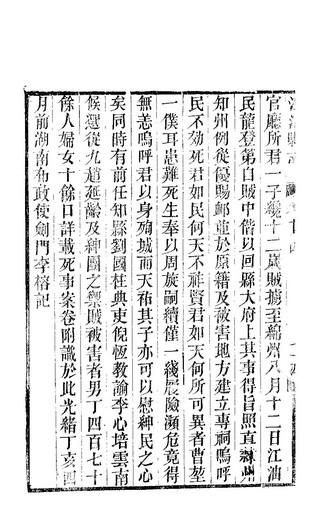 官廳所君一子纔十二歲賊擄至綿州八月十二日江油
民龍登第自賊中偕以回縣大府上其事得旨照直隸州
知州例從優賜卹並於原籍及被害地方建立專祠嗚呼
民不効死君如民何天不祚賢君如天何所可異者曹堃
一僕耳患難死生奉以周旋嗣續僅一綫屢險瀕危竟得
無恙嗚呼君以身殉城而天祐其子亦可以慰紳民之心
矣同時有前任知縣劉國柱典吏倪恆教諭李心培雲南
候選從九趙延齡及紳團之禦賊被害者男丁四百七十
餘人婦女十餘口詳載死事案卷附識於此光緒丁亥四
月前湖南布政使劍門李榕記